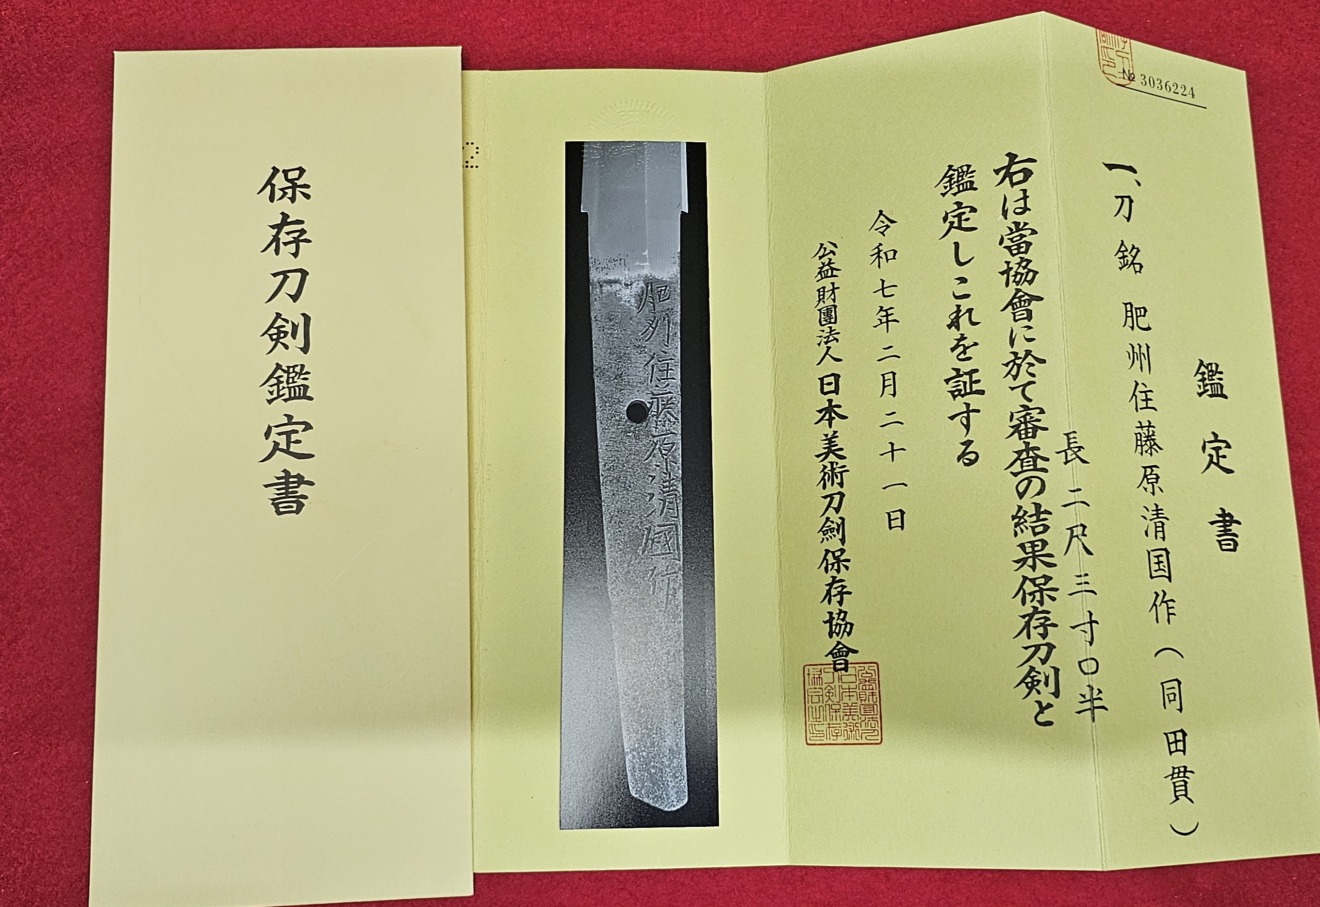 保存刀剣鑑定書
№ 3036224
鑑定書
一、刀 銘 肥州住藤原清国作(同田貫)
長 二尺三寸〇半
右は當協會に於て審査の結果保存刀剣と
鑑定しこれを証する
令和七年二月二十一日
公益財團法人 日本美術刀劍保存協會
肥州住藤原清國作